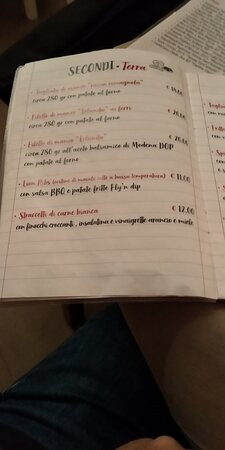 SECONDI - Terra
- Tagliata di manzo "razza romagnola" € 18,00
circa 280 gr con patate al forno
- Filetto di manzo "Irlanda" ai ferri € 20,00
circa 280 gr con patate al forno
- Filetto di manzo "Irlanda" € 20,00
circa 280 gr all'aceto balsamico di Modena DOP
con patate al forno
- Ribs (costine di maiale cotte a bassa temperatura) € 11,00
con salsa BBQ e patate fritte Fly'n dip
- Straccetti di carne bianca € 12,00
con finocchi croccanti, insalatina e vinaigrette arancio e miele